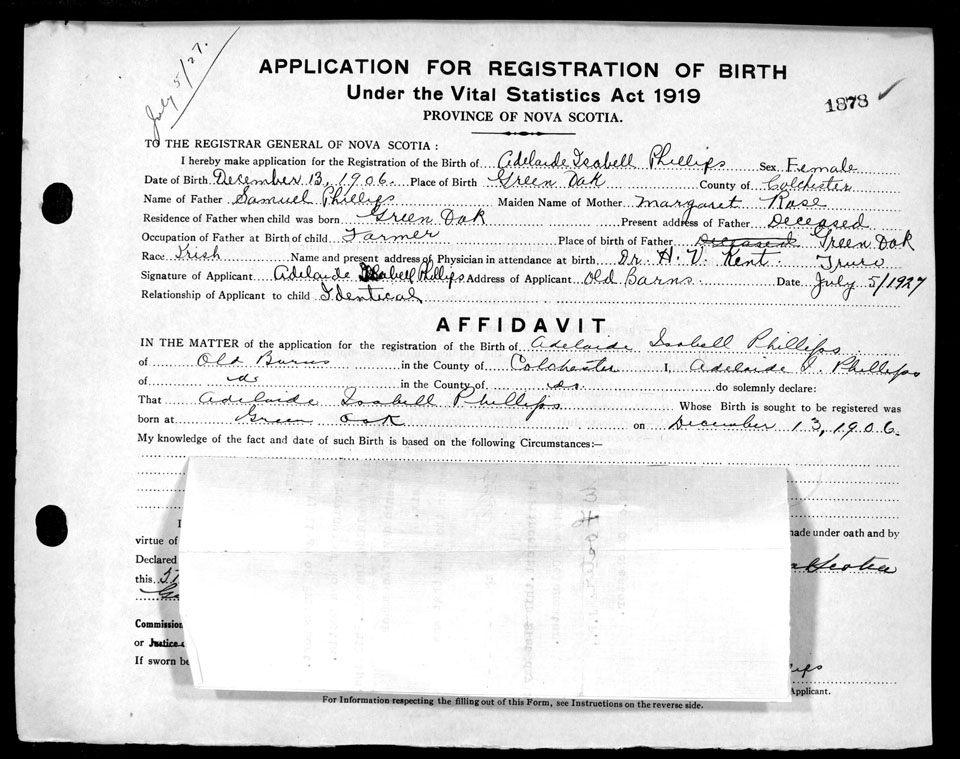 July 5/27.
APPLICATION FOR REGISTRATION OF BIRTH
Under the Vital Statistics Act 1919
1878
PROVINCE OF NOVA SCOTIA.
TO THE REGISTRAR GENERAL OF NOVA SCOTIA:
I hereby make application for the Registration of the Birth of Adelaide Isabell Phillips Sex Female
Date of Birth December 13, 1906. Place of Birth Green Oak County of Colchester
Name of Father Samuel Phillips Maiden Name of Mother Margaret Rose
Residence of Father when child was born Green Oak Present address of Father Deceased
Occupation of Father at Birth of child Farmer Place of birth of Father Deceased Green Oak
Race Irish Name and present address of Physician in attendance at birth Dr. H. V. Kent. Truro
Signature of Applicant Adelaide Isabell Phillips Address of Applicant Old Barns. Date July 5/1927
Relationship of Applicant to child Identical
AFFIDAVIT
IN THE MATTER of the application for the registration of the Birth of Adelaide Isabell Phillips
of Old Barns in the County of Colchester I, Adelaide I. Phillips
of do in the County of do. do solemnly declare:
That Adelaide Isabell Phillips Whose Birth is sought to be registered was
born at Green Oak on December 13, 1906.
My knowledge of the fact and date of such Birth is based on the following Circumstances:—
I
virtue of made under oath and by
Declared Scotia
this
Commission
or Justice
If sworn be
Applicant.
For Information respecting the filling out of this Form, see Instructions on the reverse side.